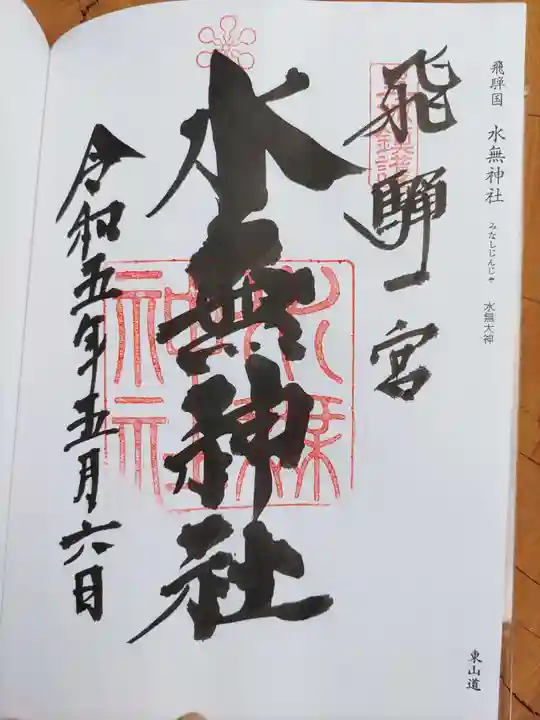 飛騨国 水無神社 みなしじんじゃ 水無大神
東山道
飛騨一宮
水無神社
令和五年五月六日
水無
神社